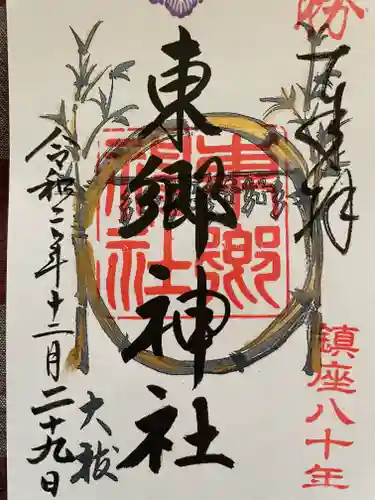 勝
正奉拝
鎮座八十年
東郷神社
東郷神社
大祓
令和二年十二月二十九日